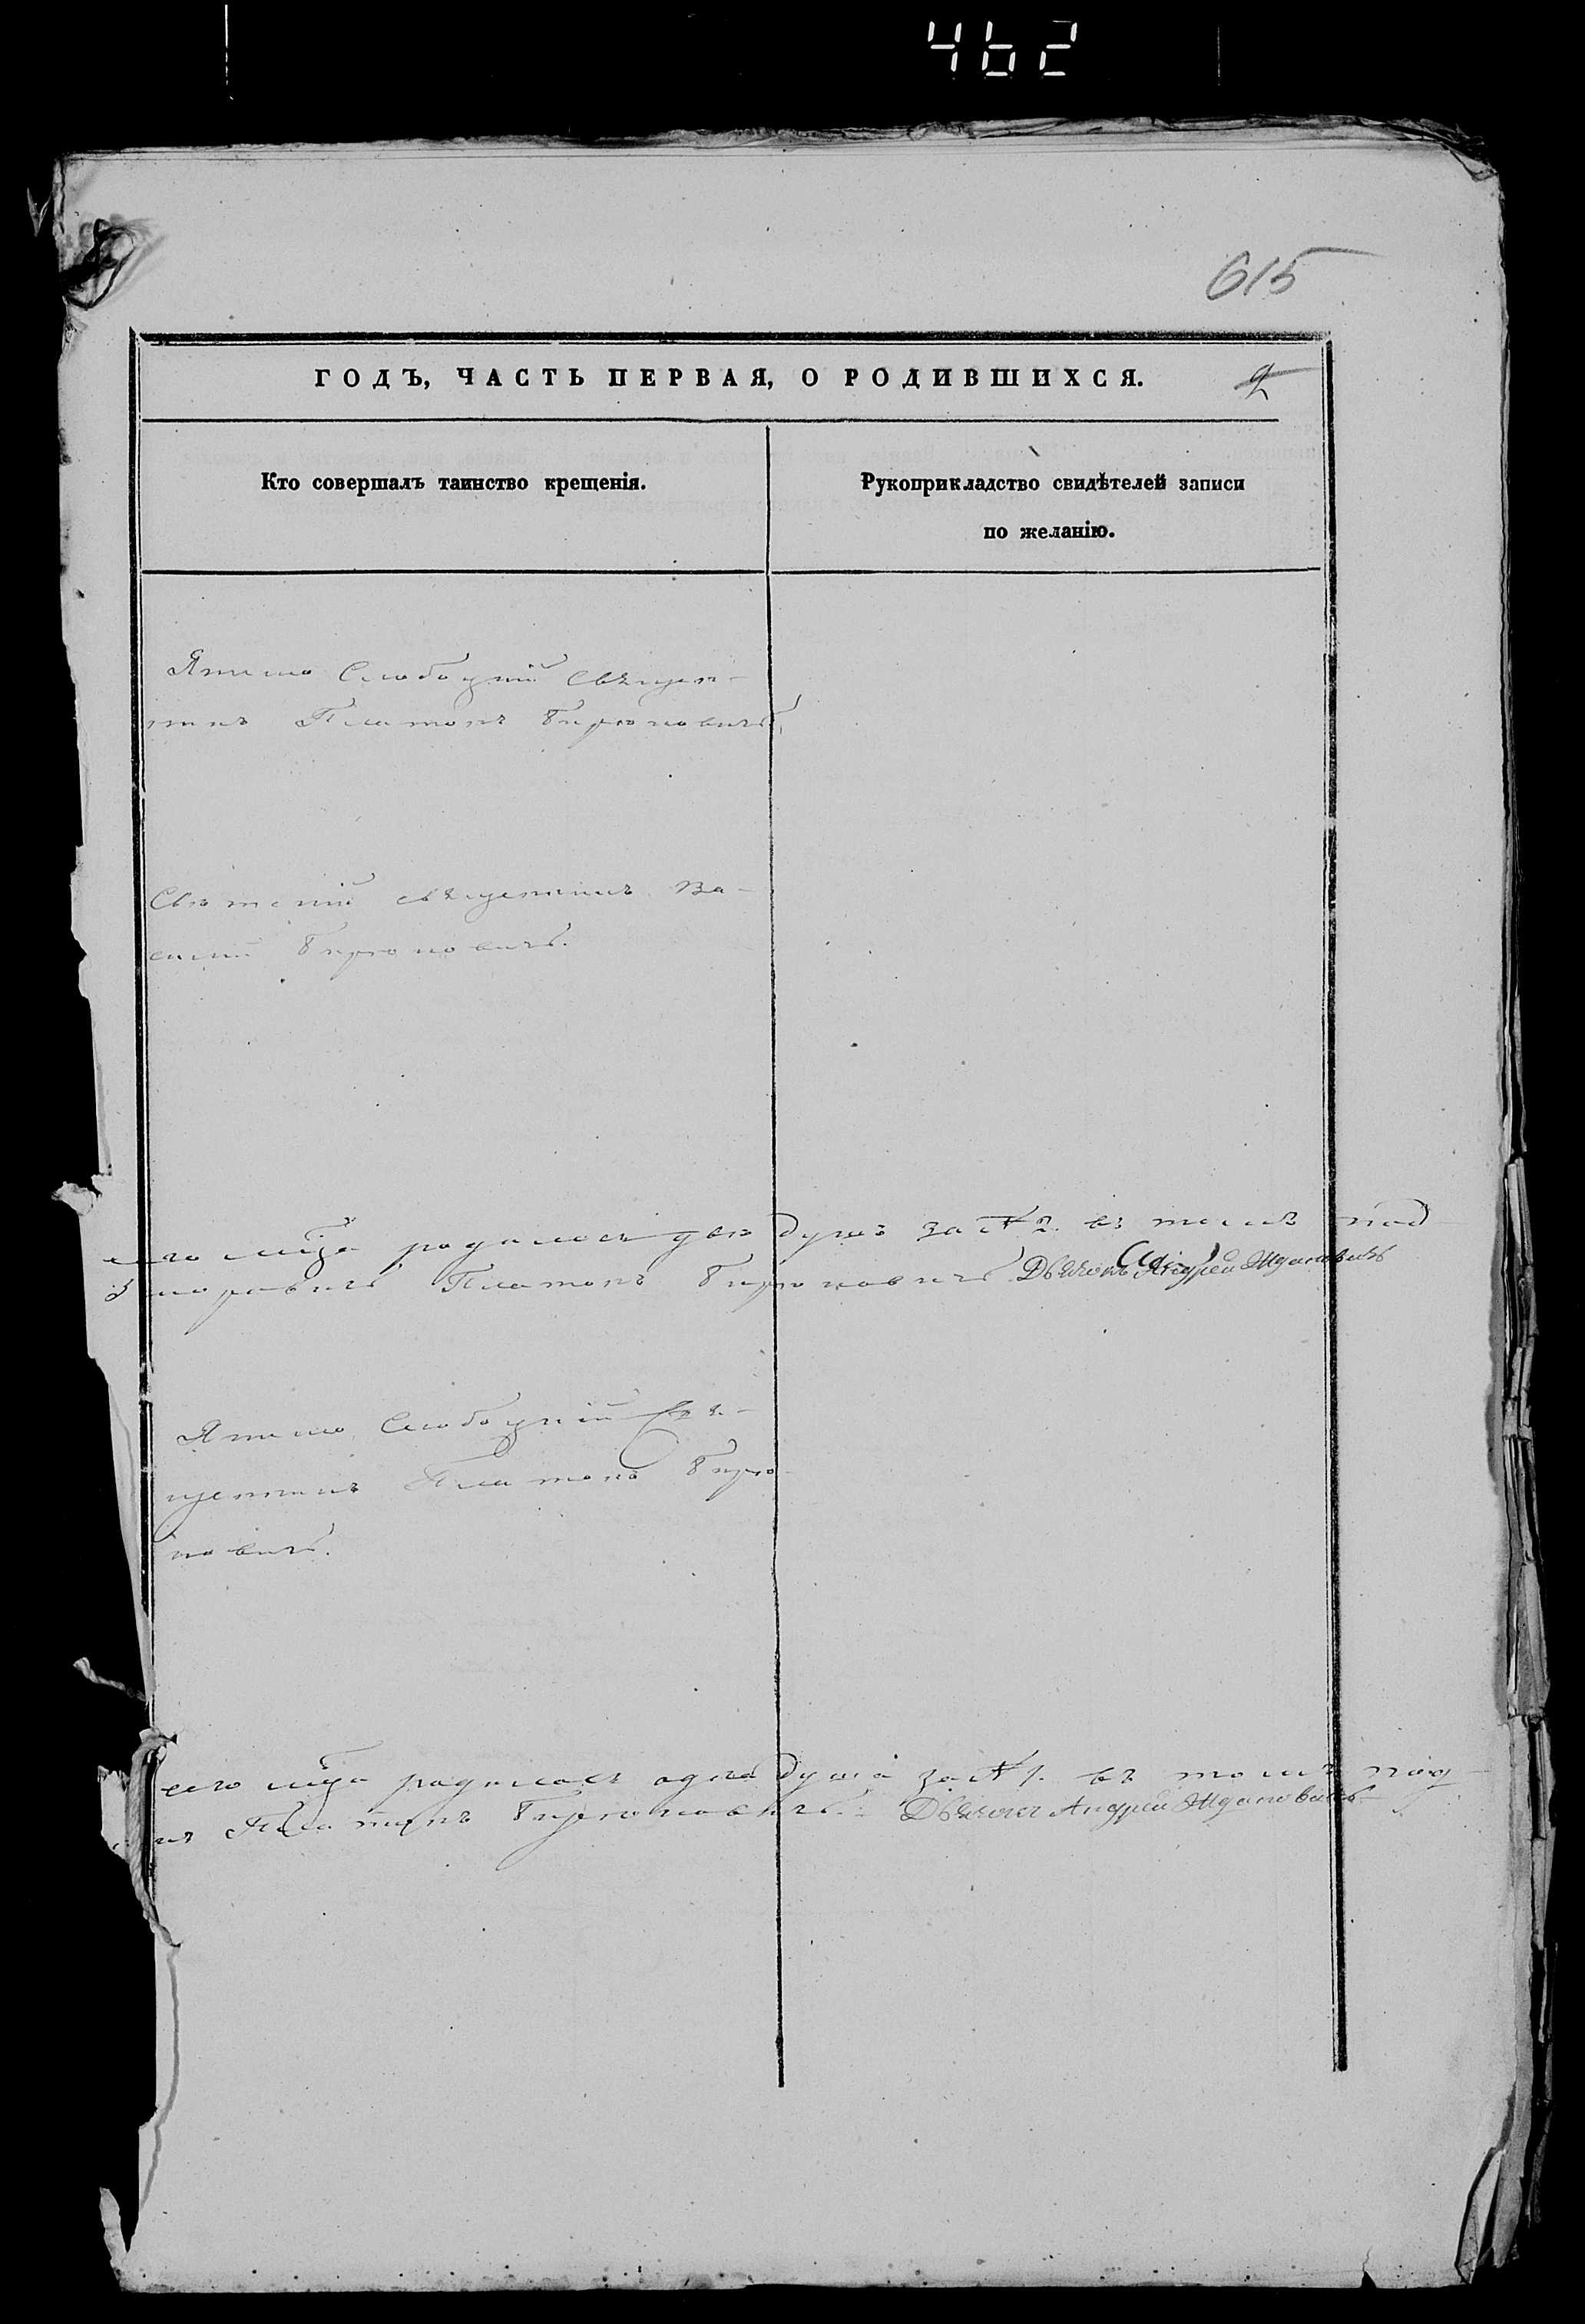 462
615
ГОДЪ, ЧАСТЬ ПЕРВАЯ, О РОДИВШИХСЯ.
2
Кто совершалъ таинство крещенія.
Рукоприкладство свидѣтелей записи
по желанію.
Слободскій Священ-
никъ Платонъ Бирюковичъ
священникъ Ва-
силій Бирюковичъ.
родилось двѣ души за № 2. въ томъ под
Платонъ Бирюковичъ Дьячокъ Андрей Ждановичъ
Слободскій Свя-
щенникъ Платонъ Бирю-
ковичъ.
сего м-ца родилось одна душа за № 1. въ томъ под-
Платонъ Бирюковичъ. Дьячокъ Андрей Ждановичъ